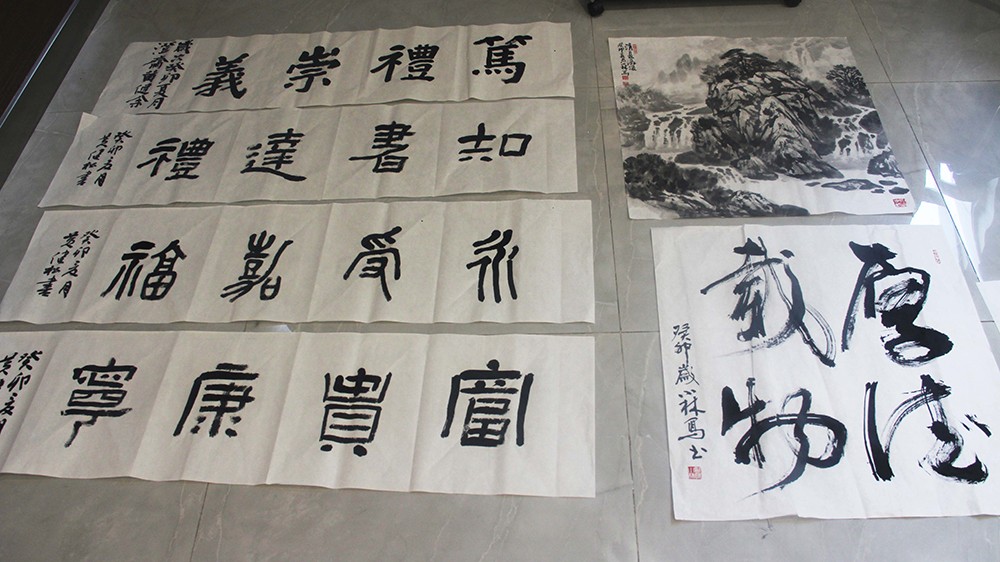 篤禮崇義
歲在癸卯夏月
知書達禮
癸卯夏月
黄建松書
永受嘉福
癸卯夏月
黄建松書
富貴康寧
癸卯夏月
厚德
載物
癸卯歲小林寫书